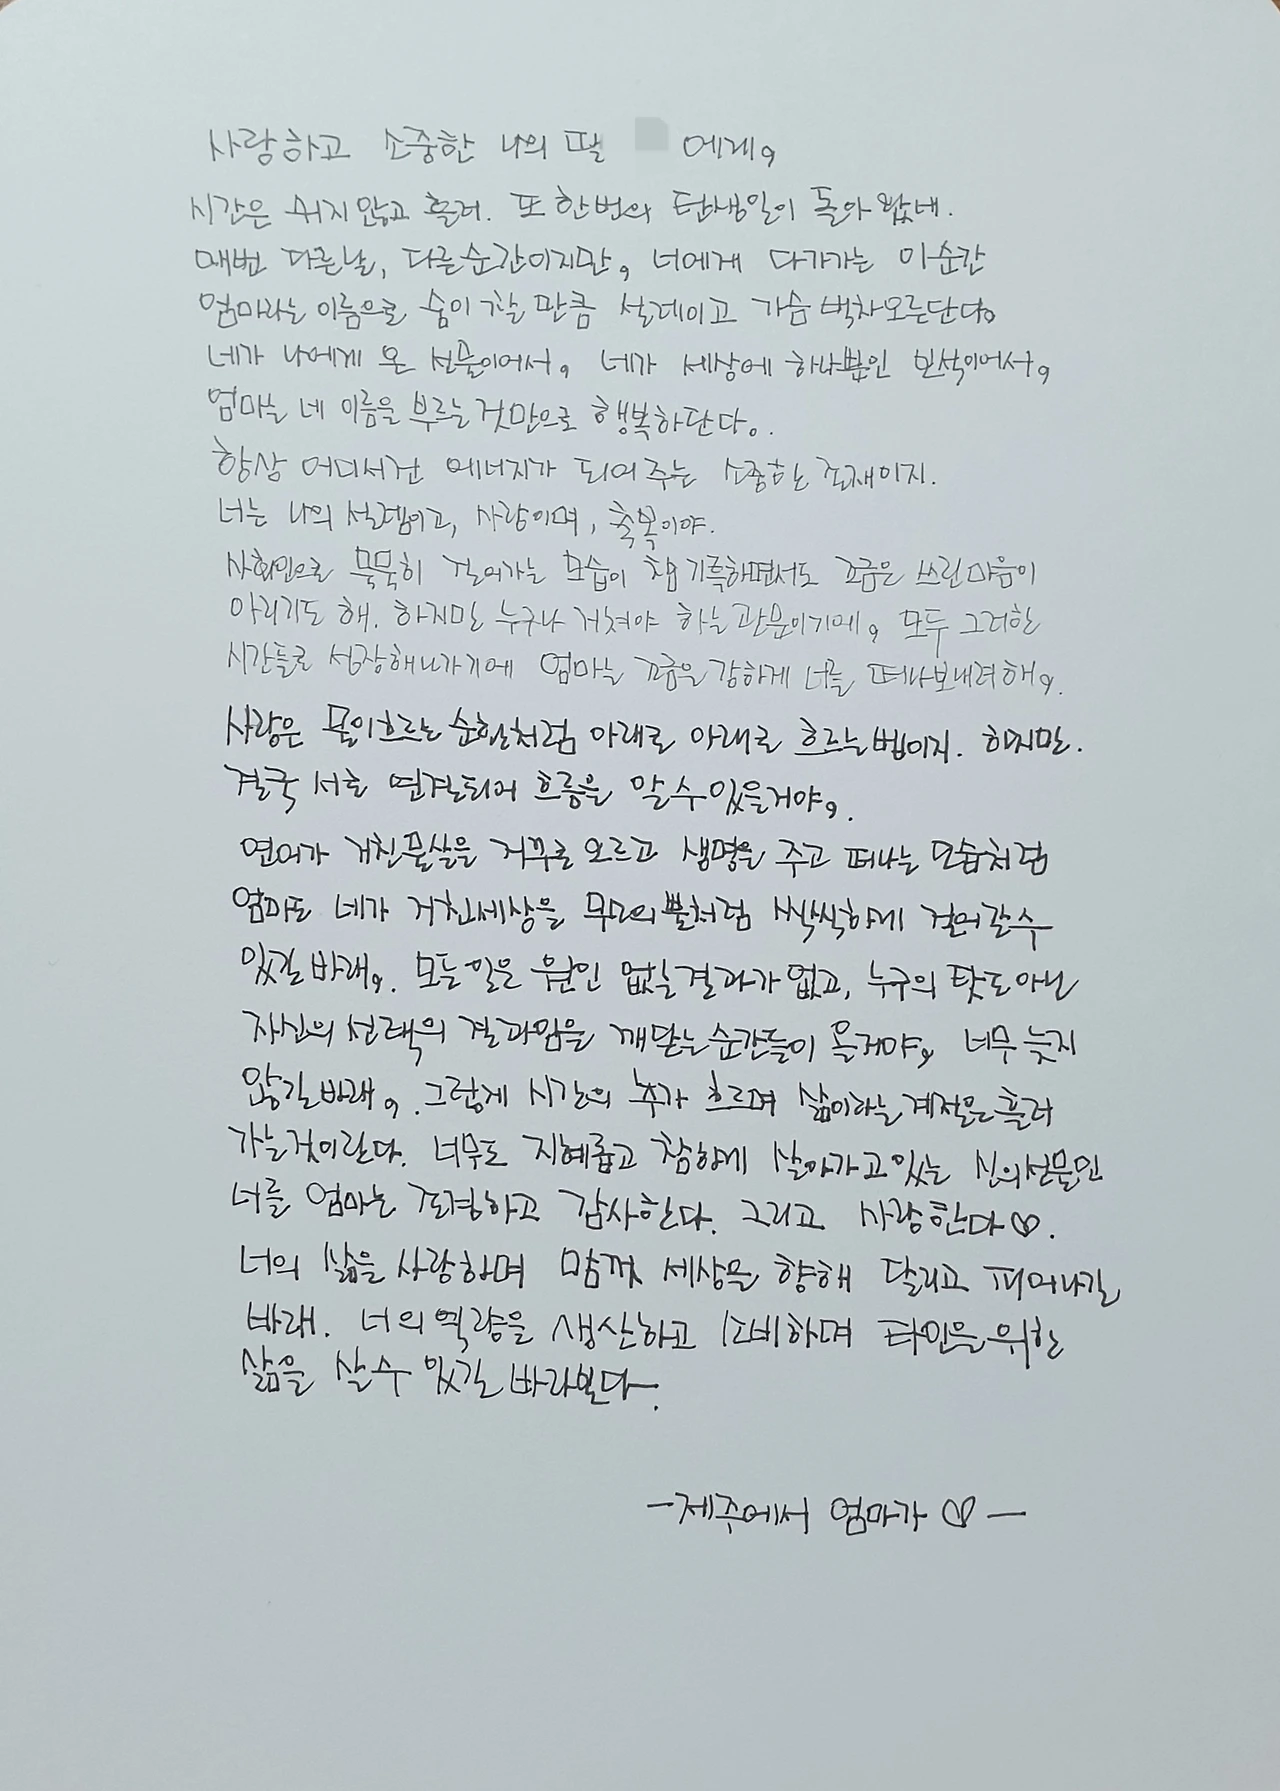 사랑하고 소중한 나의 딸 에게,
시간은 쉬지 않고 흘러. 또 한번의 탄생일이 돌아 왔네.
매번 다른날, 다른순간이지만, 너에게 다가가는 이 순간
엄마라는 이름으로 숨이 찰 만큼 설레이고 가슴 벅차오른단다.
네가 나에게 온 선물이어서, 네가 세상에 하나뿐인 보석이어서,
엄마는 네 이름을 부르는 것만으로 행복하단다.
항상 어디서건 에너지가 되어 주는 소중한 존재이지.
너는 나의 설렘이고, 사랑이며, 축복이야.
사회인으로 묵묵히 걸어가는 모습이 참 기특하면서도 조금은 쓰린마음이
아리기도 해. 하지만 누구나 거쳐야 하는 관문이기에, 모두 그러한
시간들로 성장해나가기에 엄마는 조금은 강하게 너를 떠나보내려해,.
사랑은 물이흐르는 순환처럼 아래로 아래로 흐르는 법이지. 하지만.
결국 서로 연결되어 흐름을 알 수 있을거야,.
연어가 거친물살을 거꾸로 오르고 생명을 주고 떠나는 모습처럼
엄마도 네가 거친세상을 무소의 뿔처럼 씩씩하게 걸어갈수
있길 바래,. 모든 일은 원인 없는 결과가 없고, 누구의 탓도 아닌
자신의 선택의 결과임을 깨닫는 순간들이 올거야, 너무 늦지
않길 바래,. 그렇게 시간의 추가 흐르며 삶이라는 계절은 흘러
가는것이란다. 너무도 지혜롭고 참하게 살아가고있는 신의선물인
너를 엄마는 존경하고 감사한다. 그리고 사랑한다♡.
너의 삶을 사랑하며 맘껏 세상을 향해 달리고 피어나길
바래. 너의 역량을 생산하고 소비하며 타인을 위한
삶을 살 수 있길 바라본다.
-제주에서 엄마가 ♡-